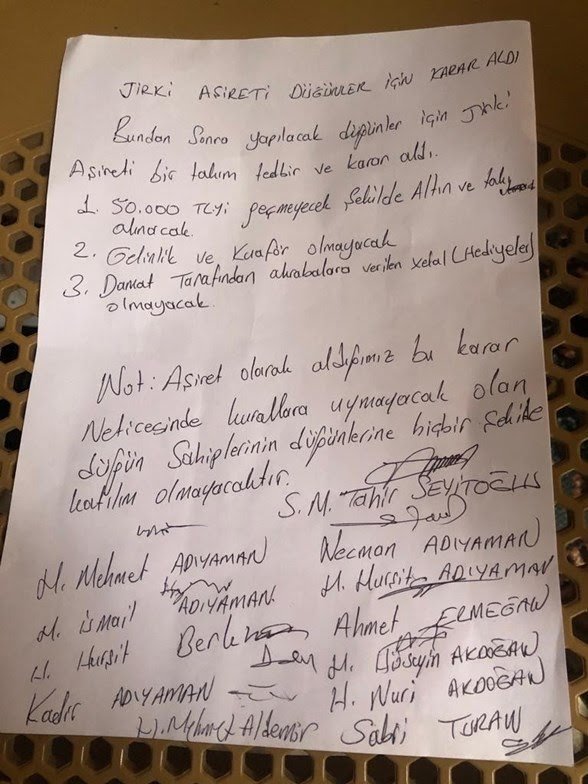 JİRKİ AŞİRETİ DÜĞÜNLER İÇİN KARAR ALDI
Bundan Sonra yapılacak düğünler için Jirki
Aşireti bir takım tedbir ve karar aldı.
1. 50.000 TL yi geçmeyecek Şekilde Altın ve takı
alınacak.
2. Gelinlik ve Kuaför olmayacak
3. Damat Tarafından akrabalara verilen xelal (Hediyeler)
olmayacak.
Not: Aşiret olarak aldığımız bu karar
Neticesinde kurallara uymayacak olan
düğün Sahiplerinin düğünlerine hiçbir Şekilde
katılım olmayacaktır.
S. M. Tahir SEYİTOĞLU
H. Mehmet ADIYAMAN Necman ADIYAMAN
H. İsmail ADIYAMAN. H. Hurşit ADIYAMAN
H. Hurşit Ahmet ERMEĞAN
Kadir ADIYAMAN H. Hüseyin AKDOĞAN
H. Nuri AKDOĞAN
H. Mehmet Aldemir Sabri TURAN